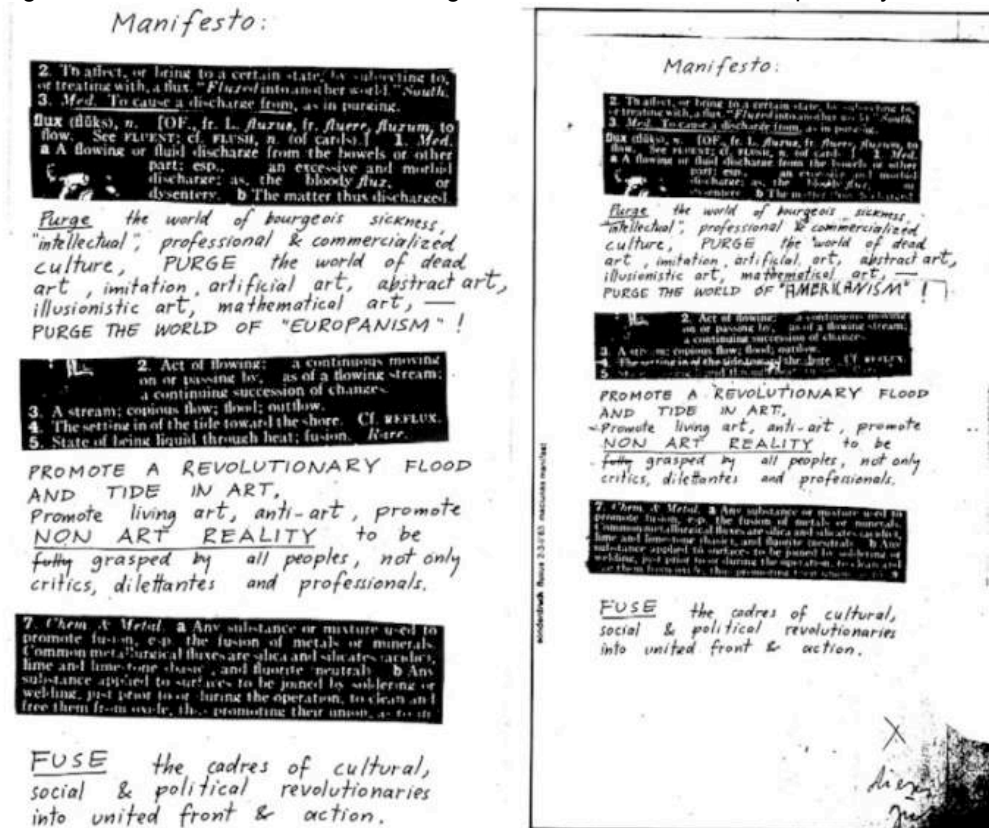 Manifesto:
2. To affect, or bring to a certain state, by subjecting to,
or treating with, a flux. "Fluxed into another world." South.
3. Med. To cause a discharge from, as in purging.
flux (flŭks), n. [OF., fr. L. fluxus, fr. fluere, fluxum, to
flow. See FLUENT; cf. FLUSH, n. (of cards).] 1. Med.
a A flowing or fluid discharge from the bowels or other
part; esp., an excessive and morbid
discharge; as, the bloody flux, or
dysentery. b The matter thus discharged.
Purge the world of bourgeois sickness,
"intellectual", professional & commercialized
culture, PURGE the world of dead
art, imitation, artificial art, abstract art,
illusionistic art, mathematical art, —
PURGE THE WORLD OF "EUROPANISM"!
2. Act of flowing: a continuous moving
on or passing by, as of a flowing stream;
a continuing succession of changes.
3. A stream; copious flow; flood; outflow.
4. The setting in of the tide toward the shore. Cf. REFLUX.
5. State of being liquid through heat; fusion. Rare.
PROMOTE A REVOLUTIONARY FLOOD
AND TIDE IN ART,
Promote living art, anti-art, promote
NON ART REALITY to be
fully grasped by all peoples, not only
critics, dilettantes and professionals.
7. Chem. & Metal. a Any substance or mixture used to
promote fusion, esp. the fusion of metals or minerals.
Common metallurgical fluxes are silica and silicates (acidic),
lime and limestone (basic), and fluorite (neutral). b Any
substance applied to surfaces to be joined by soldering or
welding, just prior to or during the operation, to clean and
free them from oxide, thus promoting their union, as
FUSE the cadres of cultural,
social & political revolutionaries
into united front & action.
Manifesto:
2. To affect, or bring to a certain state, by subjecting to,
or treating with, a flux. "Fluxed into another world." South.
3. Med. To cause a discharge from, as in purging.
flux (flŭks), n. [OF., fr. L. fluxus, fr. fluere, fluxum, to
flow. See FLUENT; cf. FLUSH, n. (of cards).] 1. Med.
a A flowing or fluid discharge from the bowels or other
part; esp., an excessive and morbid
discharge; as, the bloody flux, or
dysentery. b The matter thus discharged.
Purge the world of bourgeois sickness,
"intellectual", professional & commercialized
culture, PURGE the world of dead
art, imitation, artificial art, abstract art,
illusionistic art, mathematical art, —
PURGE THE WORLD OF "AMERICANISM"!
2. Act of flowing: a continuous moving
on or passing by, as of a flowing stream;
a continuing succession of changes.
3. A stream; copious flow; flood; outflow.
4. The setting in of the tide toward the shore. Cf. REFLUX.
5. State
PROMOTE A REVOLUTIONARY FLOOD
AND TIDE IN ART,
Promote living art, anti-art, promote
NON ART REALITY to be
fully grasped by all peoples, not only
critics, dilettantes and professionals.
7. Chem. & Metal. a Any substance or mixture used to
promote fusion, esp. the fusion of metals or minerals.
Common metallurgical fluxes are silica and silicates (acidic),
lime and limestone (basic), and fluorite (neutral). b Any
substance applied to surfaces to be joined by soldering or
welding, just prior to or during the operation, to clean and
free them from oxide, thus promoting their union
FUSE the cadres of cultural,
social & political revolutionaries
into united front & action.
sonderdruck fluxus 2-3-II 63 maciunas manifest
X